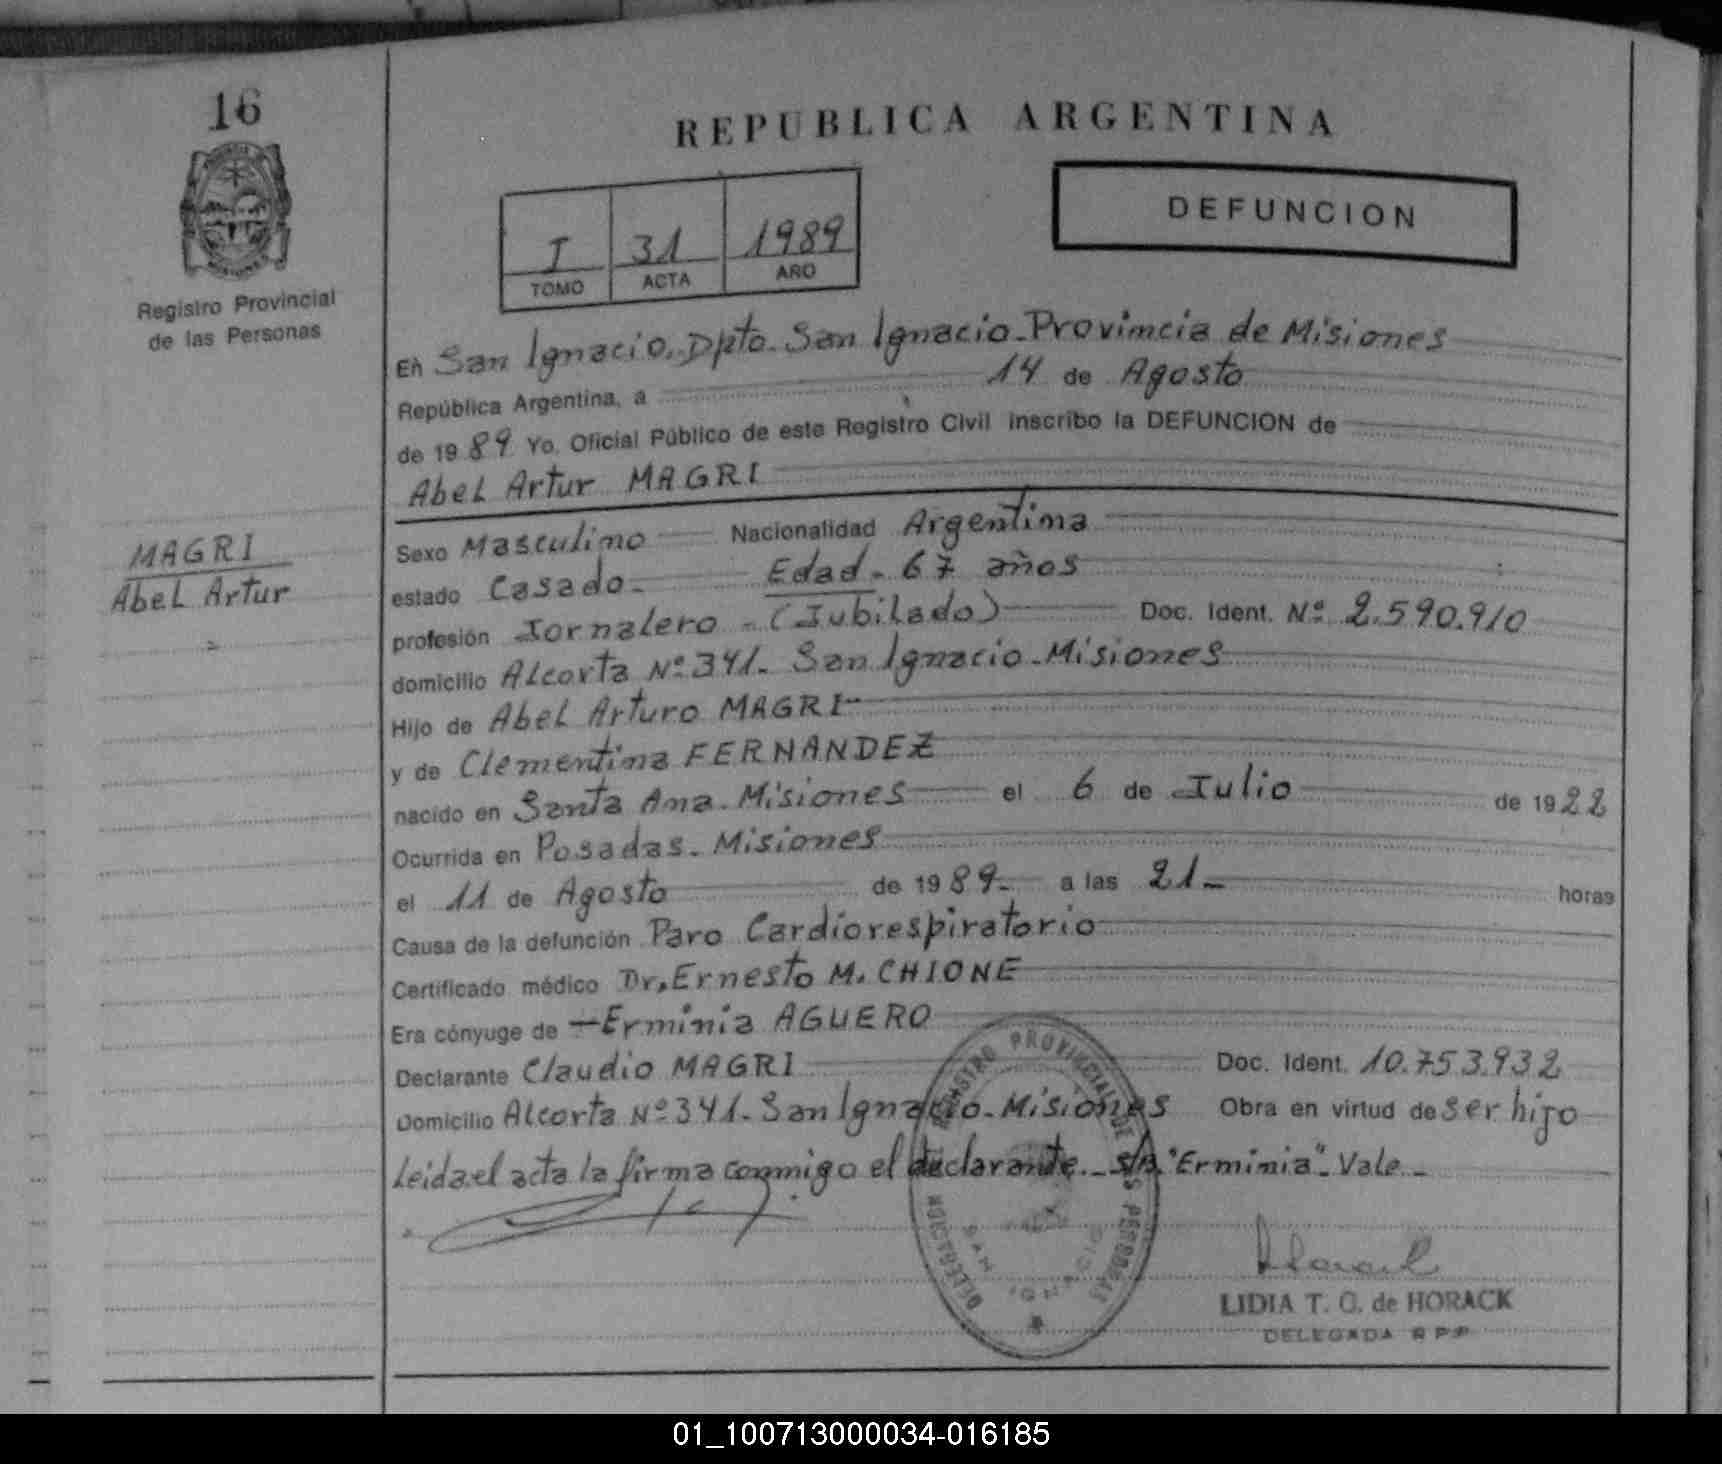 16
REPUBLICA ARGENTINA
DEFUNCION
I 31 1989
TOMO ACTA AÑO
Registro Provincial
de las Personas
En San Ignacio. Dpto. San Ignacio - Provincia de Misiones
República Argentina, a 14 de Agosto
de 1989 Yo, Oficial Público de este Registro Civil inscribo la DEFUNCION de
Abel Artur MAGRI
MAGRI
Abel Artur
Sexo Masculino Nacionalidad Argentina
estado Casado - Edad - 67 años
profesión Jornalero - (Jubilado) Doc. Ident. Nº 2.590.910
domicilio Alcorta Nº 341 - San Ignacio - Misiones
Hijo de Abel Arturo MAGRI
y de Clementina FERNANDEZ
nacido en Santa Ana - Misiones el 6 de Julio de 1922
Ocurrida en Posadas - Misiones
el 11 de Agosto de 1989 - a las 21 - horas
Causa de la defunción Paro Cardiorespiratorio
Certificado médico Dr. Ernesto M. CHIONE
Era cónyuge de - Erminia AGUERO
Declarante Claudio MAGRI Doc. Ident. 10.753.932
Domicilio Alcorta Nº 341 - San Ignacio - Misiones Obra en virtud de ser hijo
Leida el acta la firma conmigo el declarante - S/R. "Erminia" - Vale -
DELEGACION REGISTRO PROVINCIAL DE LAS PERSONAS
SAN IGNACIO
LIDIA T. G. de HORACK
DELEGADA R P P
01_100713000034-016185